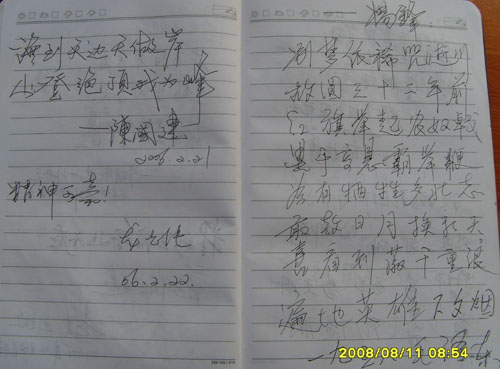 海到天边天做岸
山登绝顶我为峰
—陳國建
2006.2.21
精神可嘉!
06.2.22.
别梦依稀咒逝川
故园三十二年前
红旗卷起农奴戟
黑手高悬霸主鞭
为有牺牲多壮志
敢教日月换新天
喜看稻菽千重浪
遍地英雄下夕烟
一九五 毛泽东
2008/08/11 08:54